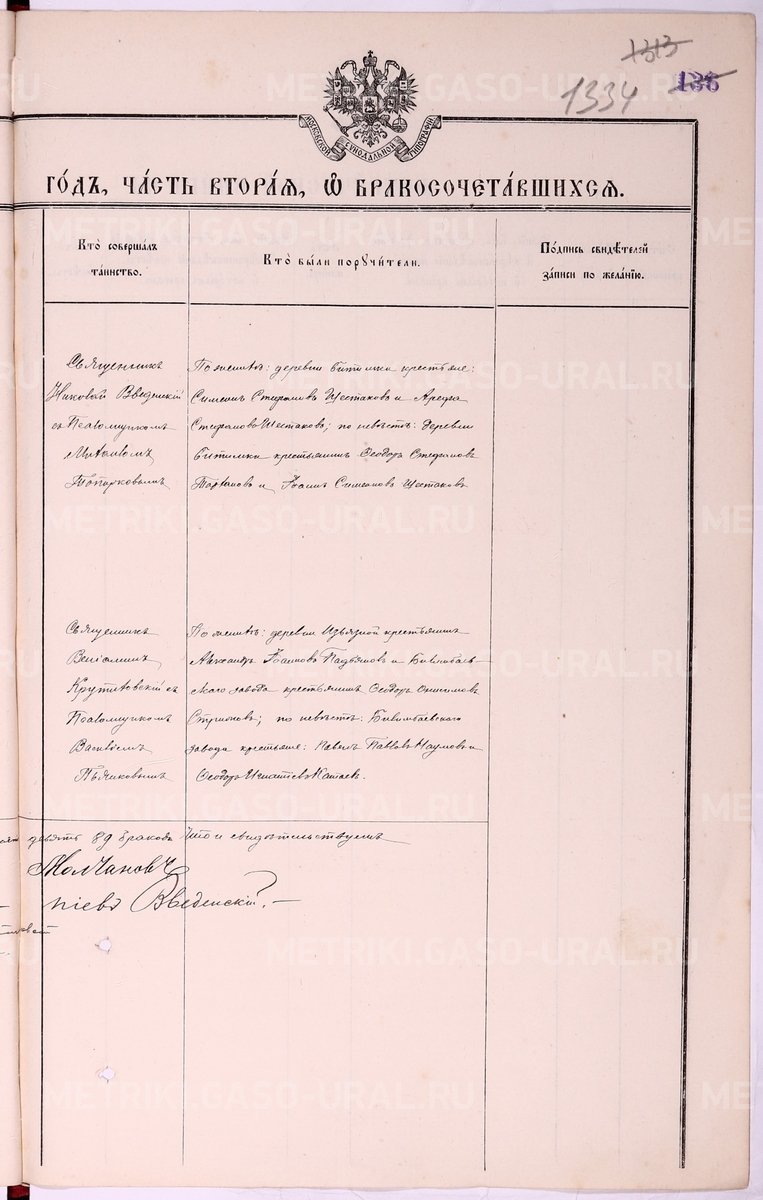 1313
1334
136
МОСКОВСКОЙ СѴНОДАЛЬНОЙ ТИПОГРАФІИ
ГОДЪ, ЧАСТЬ ВТОРАЯ, Ѡ БРАКОСОЧЕТАВШИХСЯ.
Кто совершалъ таинство.
Кто были поручители.
Подпись свидѣтелей записи по желанію.
Священникъ
Николай Введенскій
съ Псаломщикомъ
Топорковымъ
По женихѣ: деревни Битимки крестьяне:
Симеонъ Стефановъ Шестаковъ и Арефа
Стефановъ Шестаковъ; по невѣстѣ: деревни
Битимки крестьянинъ Ѳеодоръ Стефановъ
и Іоаннъ Симеоновъ Шестаковъ
Священникъ
Веніаминъ
съ
Псаломщикомъ
Василіемъ
Пьянковымъ
По женихѣ: деревни крестьянинъ
Александръ Іоанновъ и Билимбаев-
скаго завода крестьянинъ Ѳеодоръ Онисимовъ
по невѣстѣ: Билимбаевскаго
завода крестьяне: Павелъ Павловъ Наумовъ и
Ѳеодоръ Игнатьевъ Катаевъ.
девять 89 браковъ Что и свидѣтельствуемъ
Молчановъ
Введенскій.
METRIKI.GASO-URAL.RU